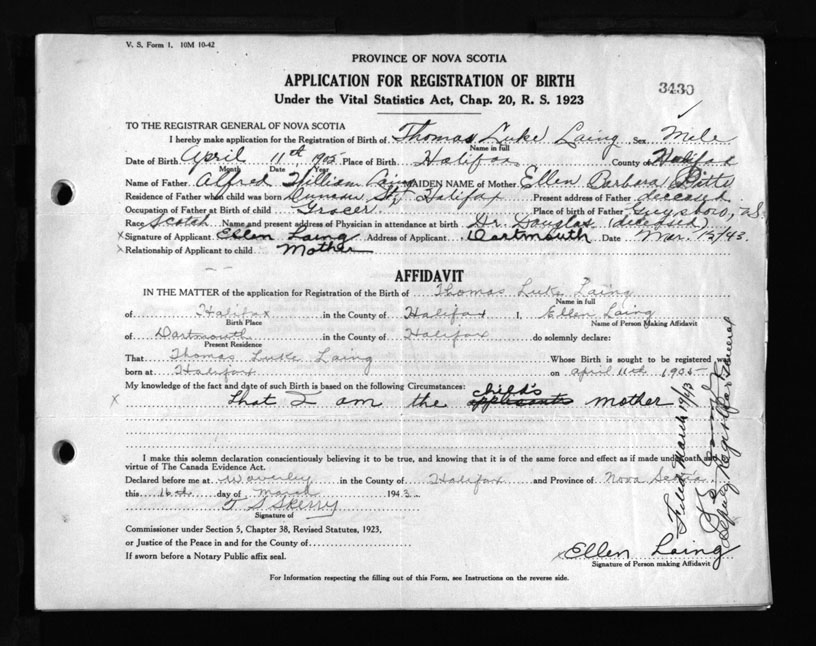 V. S. Form 1. 10M 10-42
PROVINCE OF NOVA SCOTIA
APPLICATION FOR REGISTRATION OF BIRTH
3430
Under the Vital Statistics Act, Chap. 20, R. S. 1923
TO THE REGISTRAR GENERAL OF NOVA SCOTIA
I hereby make application for the Registration of Birth of Thomas Luke Laing Sex Male
Name in full
Date of Birth April 11th 1905 Place of Birth Halifax County of Halifax
Month Date Year
Name of Father Alfred William Laing MAIDEN NAME of Mother Ellen Barbara Pitts
Residence of Father when child was born Cunard St, Halifax Present address of Father deceased
Occupation of Father at Birth of child Grocer Place of birth of Father Guysboro, N.S.
Race Scotch Name and present address of Physician in attendance at birth Dr. Douglas (deceased)
x Signature of Applicant Ellen Laing Address of Applicant Dartmouth Date Mar. 15/43.
x Relationship of Applicant to child Mother
AFFIDAVIT
IN THE MATTER of the application for Registration of the Birth of Thomas Luke Laing
Name in full
of Halifax in the County of Halifax I, Ellen Laing
Birth Place Name of Person Making Affidavit
of Dartmouth in the County of Halifax do solemnly declare:
Present Residence
That Thomas Luke Laing Whose Birth is sought to be registered was
born at Halifax on April 11th 1905
My knowledge of the fact and date of such Birth is based on the following Circumstances:
child's
x that I am the applicants mother
I make this solemn declaration conscientiously believing it to be true, and knowing that it is of the same force and effect as if made under oath and
virtue of The Canada Evidence Act.
Declared before me at Waverley in the County of Halifax and Province of Nova Scotia
this 16th day of March 1943
T S Skerry
Signature of
Commissioner under Section 5, Chapter 38, Revised Statutes, 1923,
or Justice of the Peace in and for the County of
If sworn before a Notary Public affix seal.
x Ellen Laing
Signature of Person making Affidavit
For Information respecting the filling out of this Form, see Instructions on the reverse side.
Filed March 19/43
Deputy Registrar General